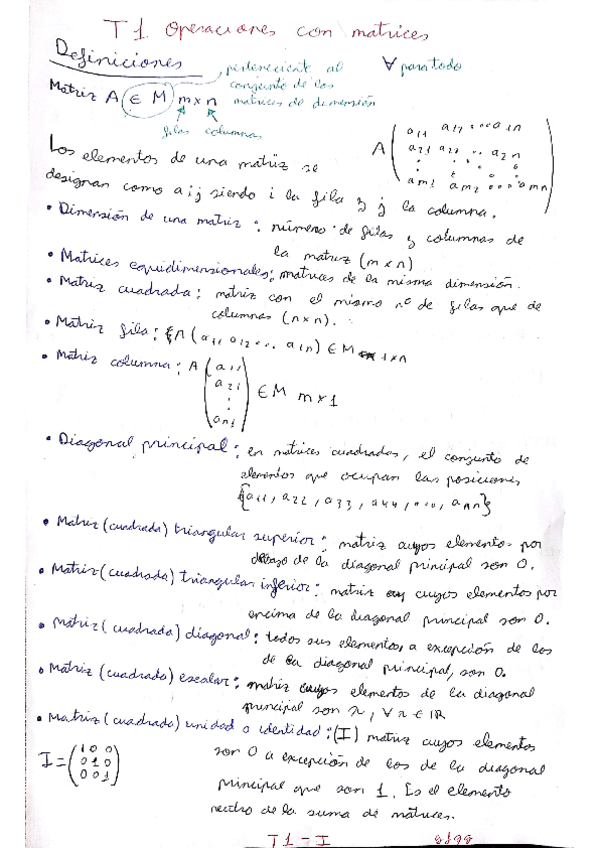 T1 Operaciones con matrices
Definiciones
perteneciente al
conjunto de las
matrices de dimensión
∀ para todo
Matriz A ∈ M m×n
filas columnas
Los elementos de una matriz se
designan como aij siendo i la fila y j la columna.
A ( a11 a12 ... a1n
a21 a22 .. a2n
am1 am2 .... amn )
• Dimensión de una matriz: número de filas y columnas de
la matriz (m×n)
• Matrices equidimensionales: matrices de la misma dimensión.
• Matriz cuadrada: matriz con el mismo nº de filas que de
columnas (n×n).
• Matriz fila: A (a11 a12 ... a1n) ∈ M 1×n
• Matriz columna: A ( a11
a21
:
an1 ) ∈ M m×1
• Diagonal principal: en matrices cuadradas, el conjunto de
elementos que ocupan las posiciones
{a11, a22, a33, a44, ..., ann}
• Matriz (cuadrada) triangular superior: matriz cuyos elementos por
debajo de la diagonal principal son 0.
• Matriz (cuadrada) triangular inferior: matriz cuyos elementos por
encima de la diagonal principal son 0.
• Matriz (cuadrada) diagonal: todos sus elementos, a excepción de los
de la diagonal principal, son 0.
• Matriz (cuadrada) escalar: matriz cuyos elementos de la diagonal
principal son λ, ∀ λ ∈ ℝ
• Matriz (cuadrada) unidad o identidad: (I) matriz cuyos elementos
son 0 a excepción de los de la diagonal
principal que son 1. Es el elemento
neutro de la suma de matrices.
I = ( 1 0 0
0 1 0
0 0 1 )
T1 - I